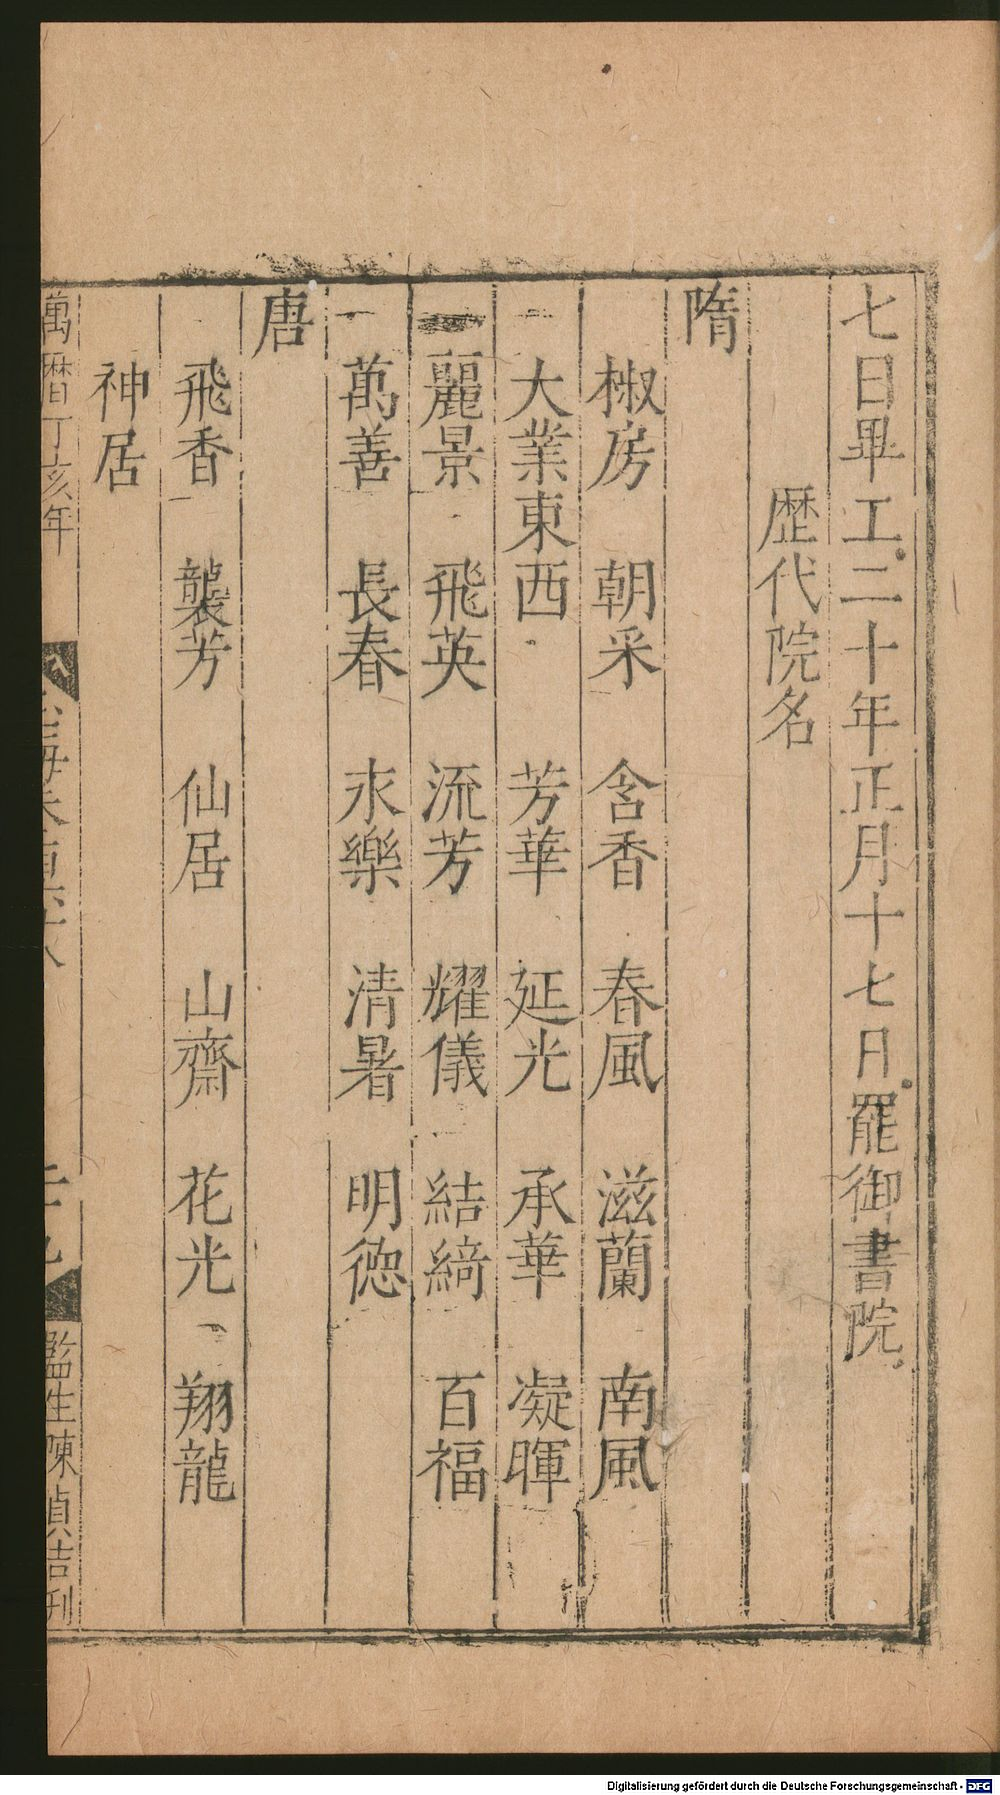 七日畢工二十年正月十七日罷御書院
歴代院名
隋
椒房　朝采　含香　春風　滋蘭　南風
大業東西　芳華　延光　承華　凝暉
麗景　飛英　流芳　耀儀　結綺　百福
萬善　長春　永樂　清暑　明德
唐
飛香　襲芳　仙居　山齋　花光　翔龍
神居
萬曆丁亥年
監生陳楨吉刊
Digitalisierung gefördert durch die Deutsche Forschungsgemeinschaft - DFG